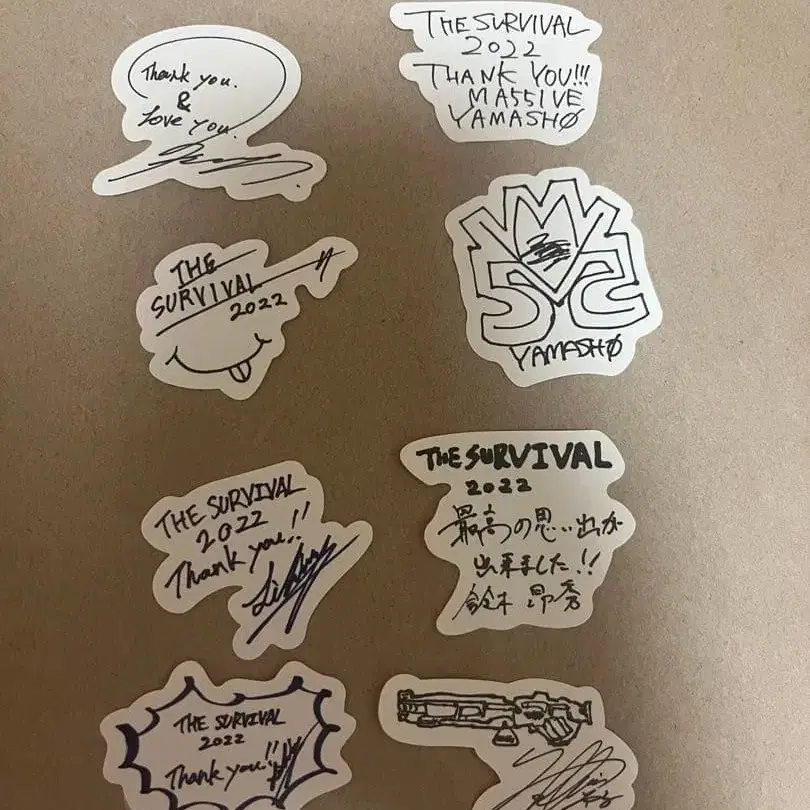 Thank you.
&
Love you.
THE SURVIVAL
2022
THANK YOU!!!
MA55IVE
YAMASHØ
THE
SURVIVAL
2022
YAMASHØ
THE SURVIVAL
2022
Thank you!!
THE SURVIVAL
2022
最高の思い出が
出来ました!!
鈴木 昂秀
THE SURVIVAL
2022
Thank you!!